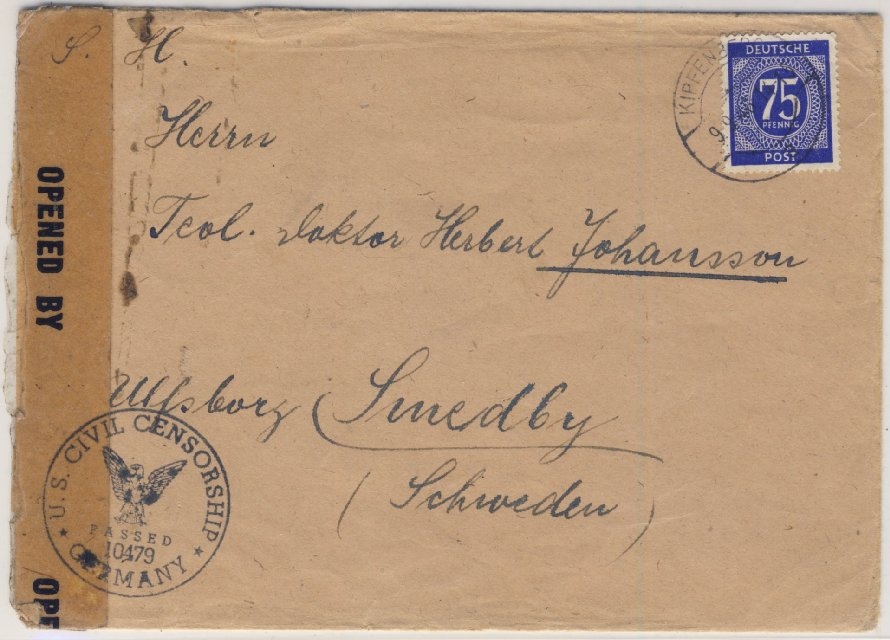 S. H.
Herrn
Teol. Doktor Herbert Johansson
Ulfsborg Smedby
(Schweden)
DEUTSCHE
75
PFENNIG
POST
KIPFENBERG
OPENED BY
OPE
U.S. CIVIL CENSORSHIP
PASSED
10479
GERMANY